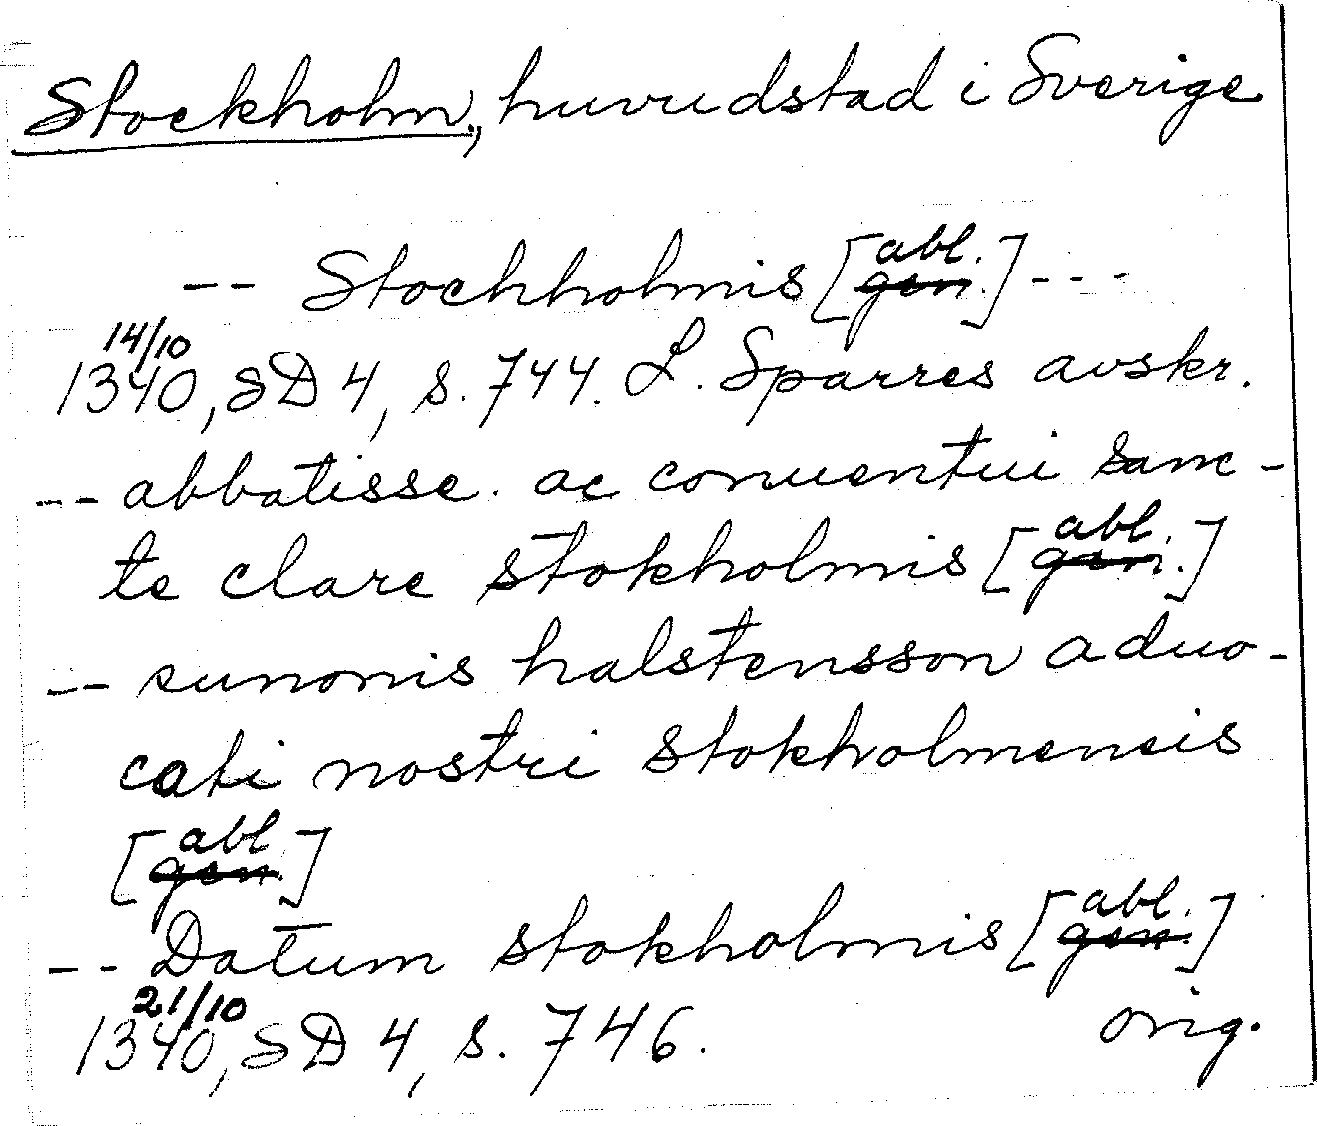 Stockholm, huvudstad i Sverige
-- Stochholmis [abl. gen.] ---
14/10
1340, SD 4, s. 744. L. Sparres avskr.
-- abbatisse. ac conuentui sanc-
te clare stokholmis [abl. gen.]
-- sunonis halstensson aduo-
cati nostri stokholmensis
[abl gen.]
-- Datum stokholmis [abl. gen.]
21/10
1340, SD 4, s. 746. orig.